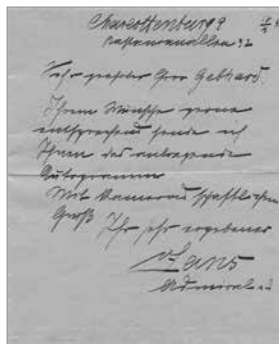 Charlottenburg 9
Kastanienallee 32
Sehr geehrter Herr Gebhard.
Ihrem Wunsche gerne
entsprechend sende ich
Ihnen das anliegende
Autogramm
Mit kameradschaftlichem
Gruß
Ihr sehr ergebener
v. Lans
Admiral a.D.